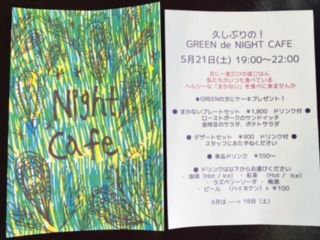 Night
Cafe
久しぶりの！
GREEN de NIGHT CAFE
5月21日(土) 19:00～22:00
月に一度だけの夜ごはん
私たちがいつも食べている
ヘルシーな「まかない」を食べに来ませんか
★GREENの方にケーキプレゼント！
● まかないプレートセット ￥1,800 ドリンク付 ●
ローストポークのサンドイッチ
ポテトサラダ
● デザートセット ￥900 ドリンク付 ●
スタッフにおたずねください
● 単品ドリンク ￥550～
● ドリンクは以下からお選びください
・珈琲 (Hot / Ice) ・紅茶 (Hot / Ice)
・ラズベリーソーダ ・梅酒
・ビール (ハイネケン) + ￥100
6月は ---> 18日 (土)